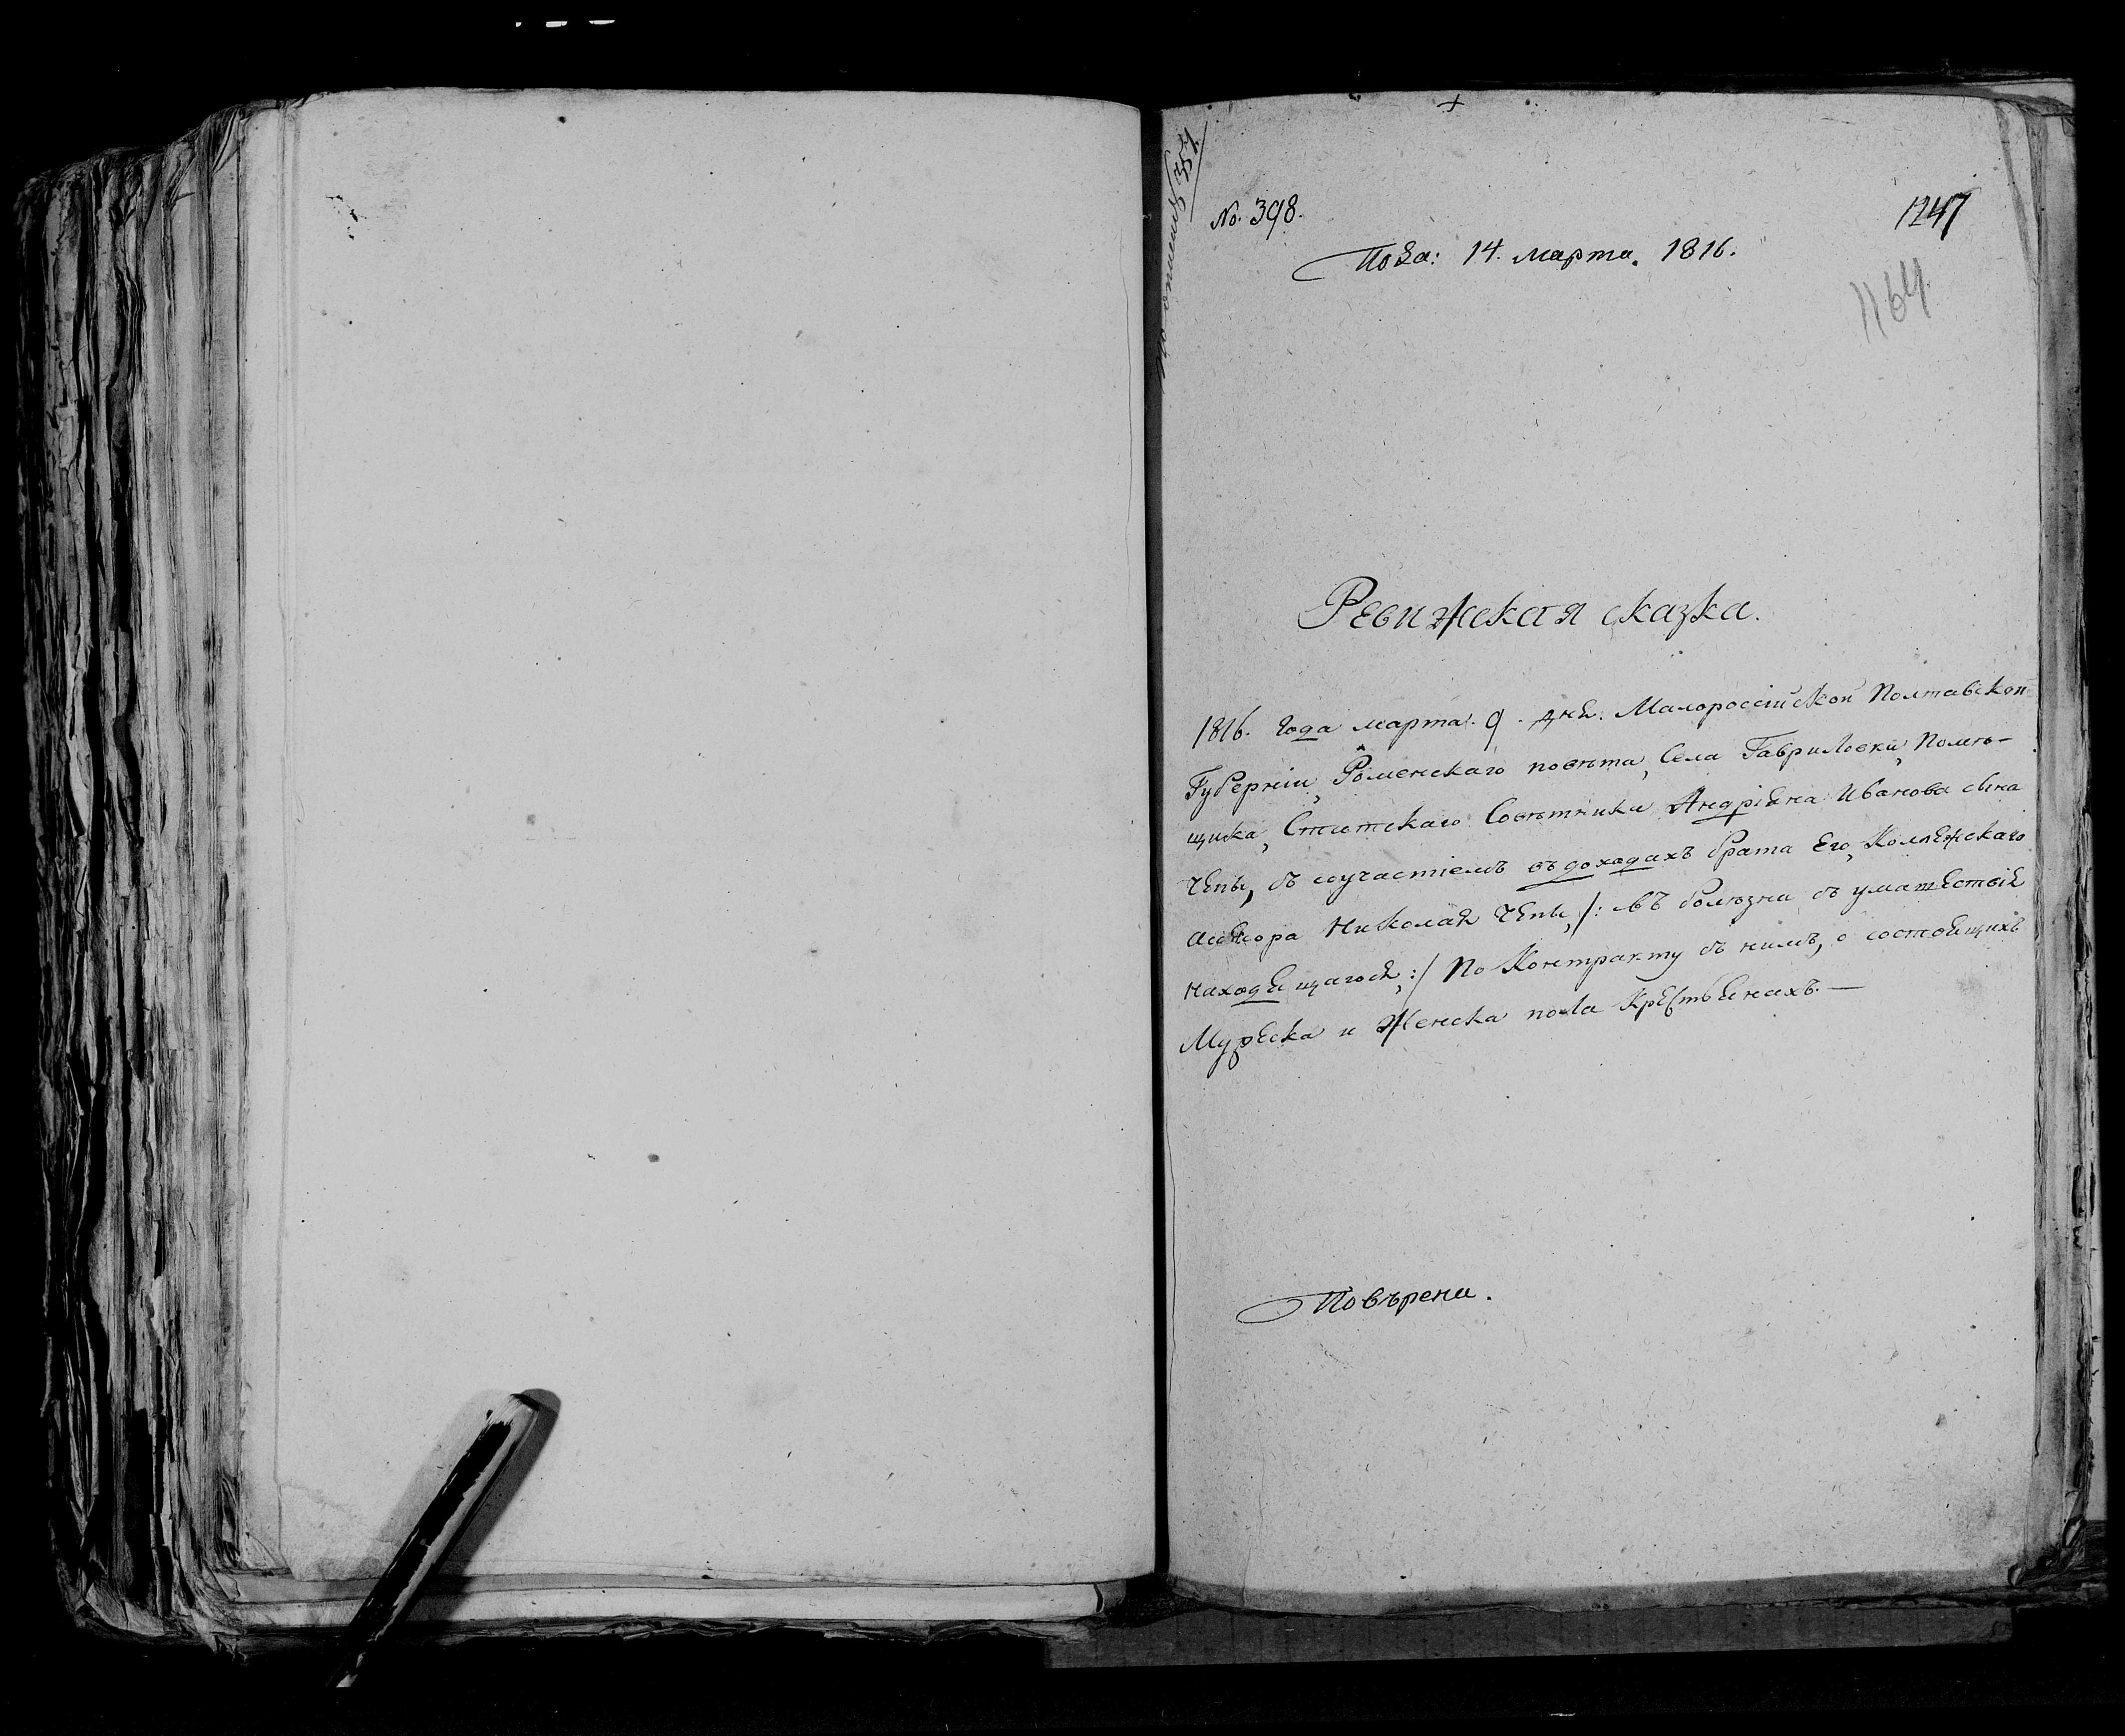 354
No. 398.
1247
Пода: 14. марта. 1816.
1164.
Ревижская сказка.
1816. года марта. 9. дня. Малороссійской Полтавской
Губерніи, Роменскаго повѣта, Села Гавриловки, Помѣ-
щика, Статскаго Совѣтника Андріяна Иванова сына
Чепы, съ соучастіемъ въ доходахъ брата его, Коллежскаго
асессора Николая Чепы, /: въ болѣзни съумашествія
находящагося, :/ По Контракту съ нимъ, о состоящихъ
Мужеска и Женска пола Крестьянахъ. —
Повѣрена.